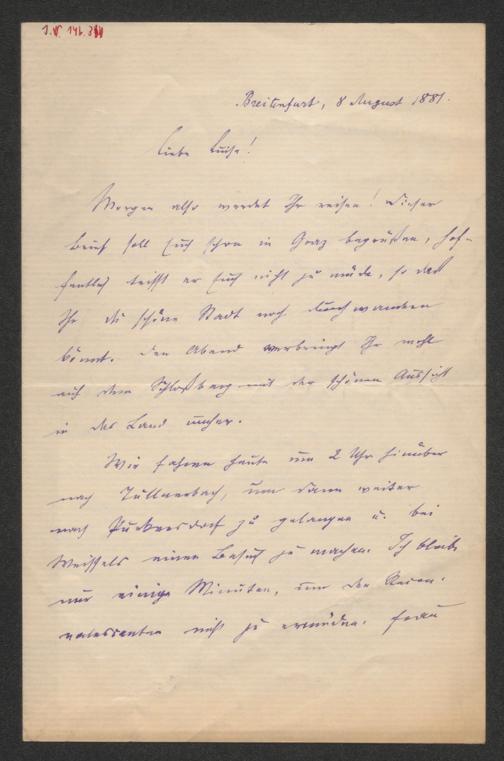 J.N. 146.311
Breitenfurt, 8 August 1881.
Liebe Luise!
Morgen also werdet Ihr reisen! Dieser
Brief soll Euch schon in Graz begrüßen, hof-
fentlich trifft er Euch nicht zu müde, so daß
Ihr die schöne Stadt noch durchwandern
könnt. Den Abend verbringt Ihr wohl
auf dem Schloßberg mit der schönen Aussicht
in das Land umher.
Wir fahren heute um 2 Uhr hinüber
nach Tullnerbach, um dann weiter
nach Purkersdorf zu gelangen u. bei
einen Besuch zu machen. Ich bleibe
nur einige Minuten, um den Recon-
valescenten nicht zu ermüden. Frau